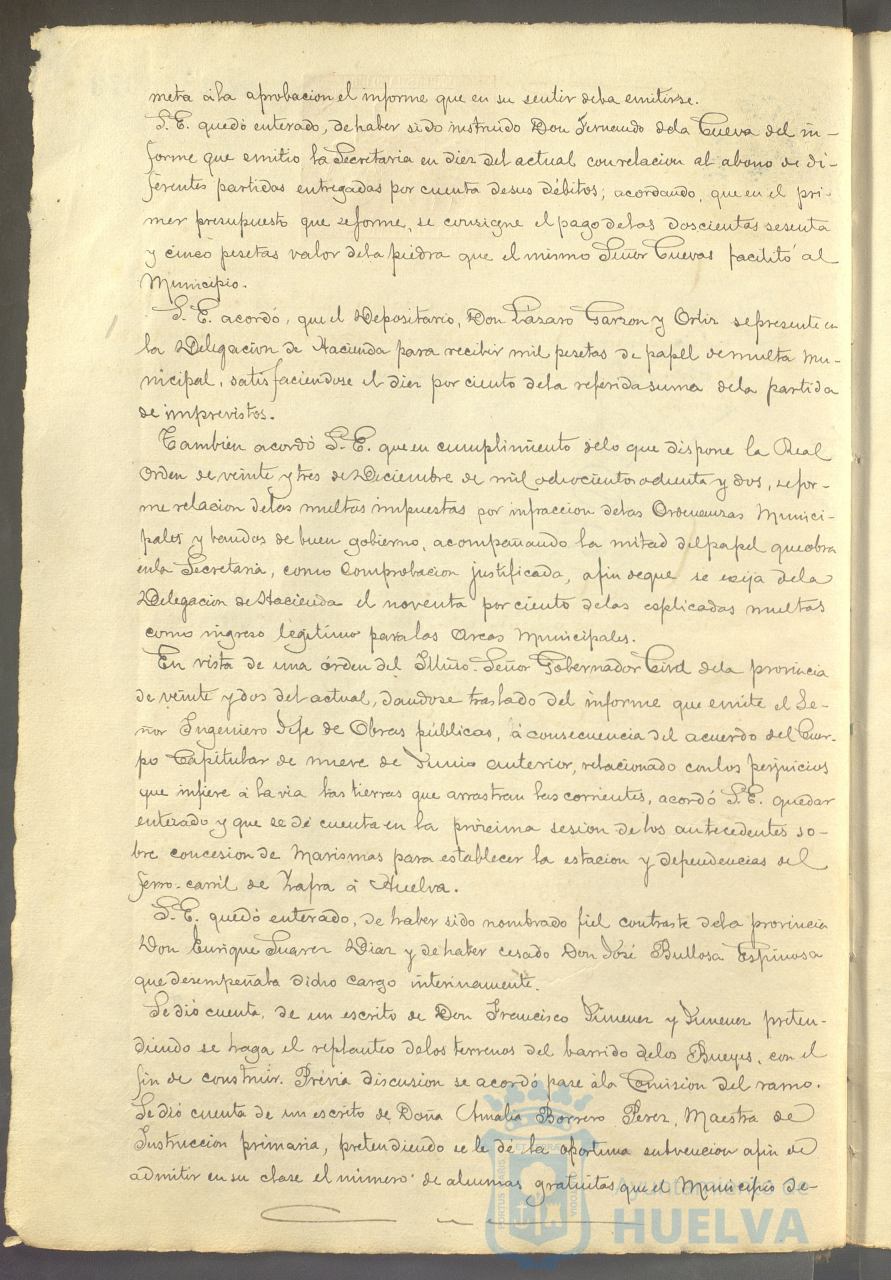 meta á la aprobacion el informe que en su sentir deba emitirse.
S. E. quedó enterado, de haber sido instruido Don Fernando dela Cueva del in-
forme que emitió la Secretaria en diez del actual con relacion al abono de di-
ferentes partidas entregadas por cuenta desus débitos; acordando, que en el pri-
mer presupuesto que seforme, se consigne el pago delas doscientas sesenta
y cinco pesetas valor dela piedra que el mismo Señor Cuevas facilitó al
Municipio.
S. E. acordó, que el Depositario, Don Lázaro Garzon y Ortiz sepresente en
la Delegacion de Hacienda para recibir mil pesetas de papel demulta mu-
nicipal, satisfaciendose el diez por ciento dela referida suma dela partida
de imprevistos.
Tambien acordó S. E. que en cumplimiento delo que dispone la Real
Orden de veinte y tres de Diciembre de mil ochocientos ochenta y dos, se for-
me relacion delas multas impuestas por infraccion delas Ordenanzas Munici-
pales y bandos de buen gobierno, acompañando la mitad del papel que obra
enla Secretaria, como comprobacion justificada, afin deque se exija dela
Delegacion de Hacienda el noventa por ciento delas esplicadas multas
como ingreso legitimo para las Arcas Municipales.
En vista de una órden del Illmo. Señor Gobernador Civil dela provincia
de veinte y dos del actual, dandose traslado del informe que emite el Se-
ñor Ingeniero Jefe de Obras públicas, á consecuencia del acuerdo del Cuer-
po Capitular de nueve de Junio anterior, relacionado conlos perjuicios
que infiere á la via las tierras que arrastran las corrientes, acordó S. E. quedar
enterado y que se dé cuenta en la próxima sesion de los antecedentes so-
bre concesion de Marismas para establecer la estacion y dependencias del
ferro-carril de Zafra á Huelva.
S. E. quedó enterado, de haber sido nombrado fiel contraste dela provincia
Don Enrique Suarez Diaz y de haber cesado Don José Bullosa Espinosa
que desempeñaba dicho cargo interinamente.
Se dió cuenta, de un escrito de Don Francisco Jimenez y Jimenez preten-
diendo se haga el replanteo delos terrenos del barrido delos Bueyes, con el
fin de construir. Prévia discusion se acordó pase ála Comision del ramo.
Se dió cuenta de un escrito de Doña Amalia Borrero Perez, Maestra de
Instruccion primaria, pretendiendo se le dé la oportuna subvencion afin de
admitir en su clase el número de alumnas gratuitas que el Municipio de-
Ayuntamiento de
HUELVA